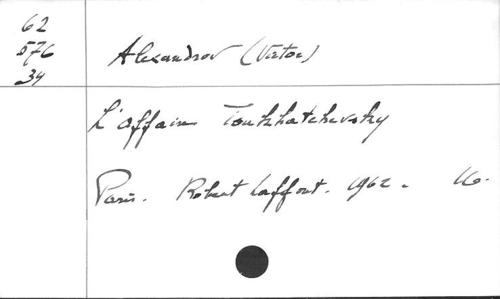 62
576
34
Alexandrov (Victor)
L'affaire Toukhatchevsky
Paris. Robert Laffont. 1962. 16.